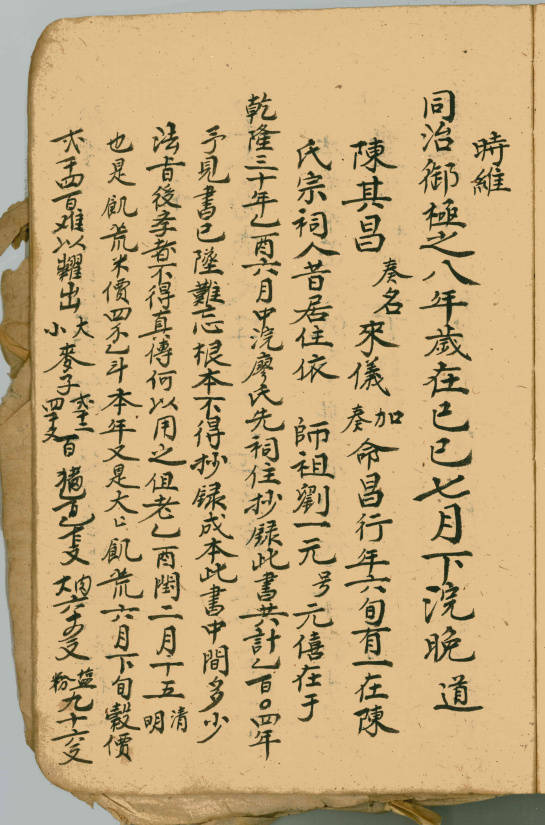 時維
同治御極之八年歲在己巳七月下浣晚 道
陳其昌 奏名 來儀 加奏 命昌行年六旬有一在陳
氏宗祠人昔居住依 師祖劉一元 号 元僖在于
乾隆三十年乙酉六月中浣廖氏先祠住抄録此書共計乙百〇四年
予見書已墜難忘根本不得抄録成本此書中間多少
法旨後孝者不得真傳何以用之但老乙酉閏二月十五 清明
也是飢荒米價四千乙斗本年又是大上飢荒六月下旬穀價
弍千四百难以糶出 大小 麥子 百
肉 六十 文 鹽 粉 九十六文